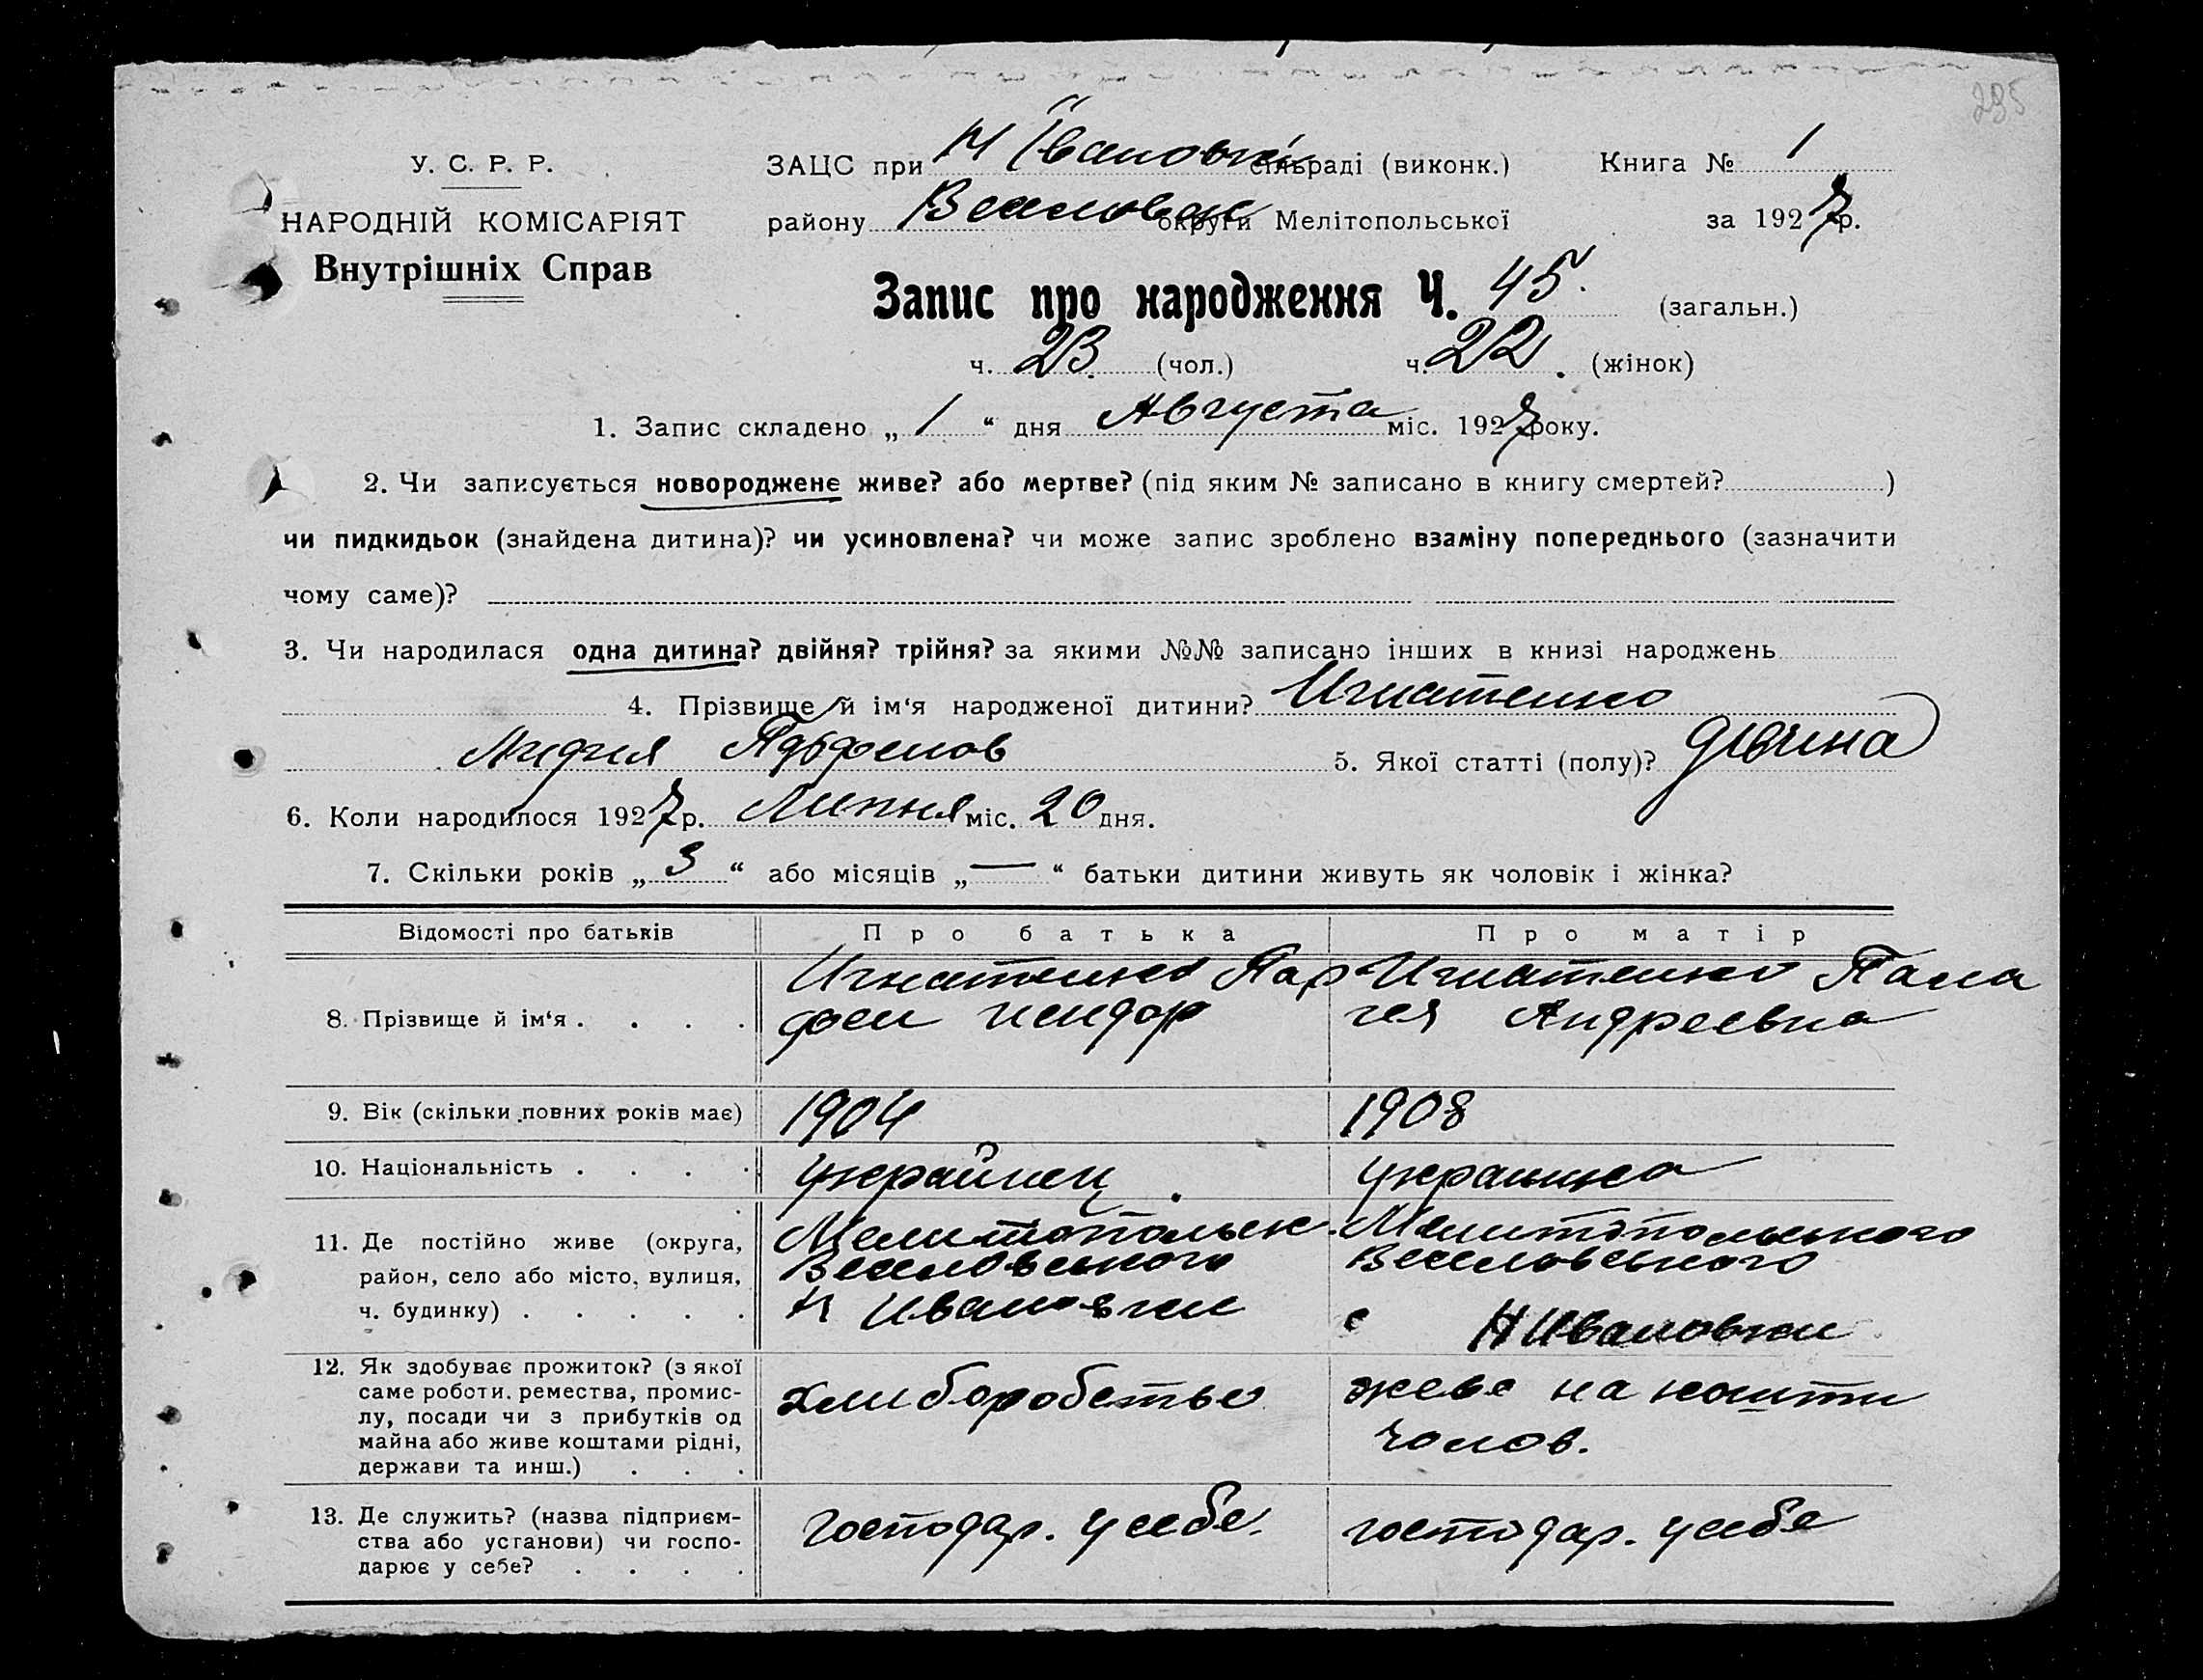 295
У. С. Р. Р.
НАРОДНІЙ КОМІСАРІЯТ
Внутрішніх Справ
ЗАЦС при Н Івановкі сільраді (виконк.) Книга № 1
району Веселовск округи Мелітопольської за 1927 р.
Запис про народження Ч. 45. (загальн.)
ч. 23. (чол.) ч. 22. (жінок)
1. Запис складено „ 1 “ дня Августа міс. 1927 року.
2. Чи записується новороджене живе? або мертве? (під яким № записано в книгу смертей? )
чи пидкидьок (знайдена дитина)? чи усиновлена? чи може запис зроблено взаміну попереднього (зазначити
чому саме)?
3. Чи народилася одна дитина? двійня? трійня? за якими №№ записано інших в книзі народжень
4. Прізвище й ім‘я народженої дитини? Игнатенко
Лидия 5. Якої статті (полу)? дівчина
6. Коли народилося 1927 р. Липня міс. 20 дня.
7. Скільки років „ 3 “ або місяців „ — “ батьки дитини живуть як чоловік і жінка?
Відомості про батьків Про батька Про матір
8. Прізвище й ім‘я . . . . Игнатенко Пар Игнатенко Пала
фен гея Андреевна
9. Вік (скільки повних років має) 1904 1908
10. Національність . . . . украйнец. украинка
11. Де постійно живе (округа, Мелитопольск. Мелитопольского
район, село або місто, вулиця, Веселовського Веселовського
ч. будинку) . . . . . Н Ивановки с Н Ивановки
12. Як здобуває прожиток? (з якої
саме роботи, ремества, промис- хлиборобство живе на кошти
лу, посади чи з прибутків од
майна або живе коштами рідні, чолов.
держави та инш.) . . .
13. Де служить? (назва підприєм- господар. у себе. господар. у себе
ства або установи) чи госпо-
дарює у себе? . . . .